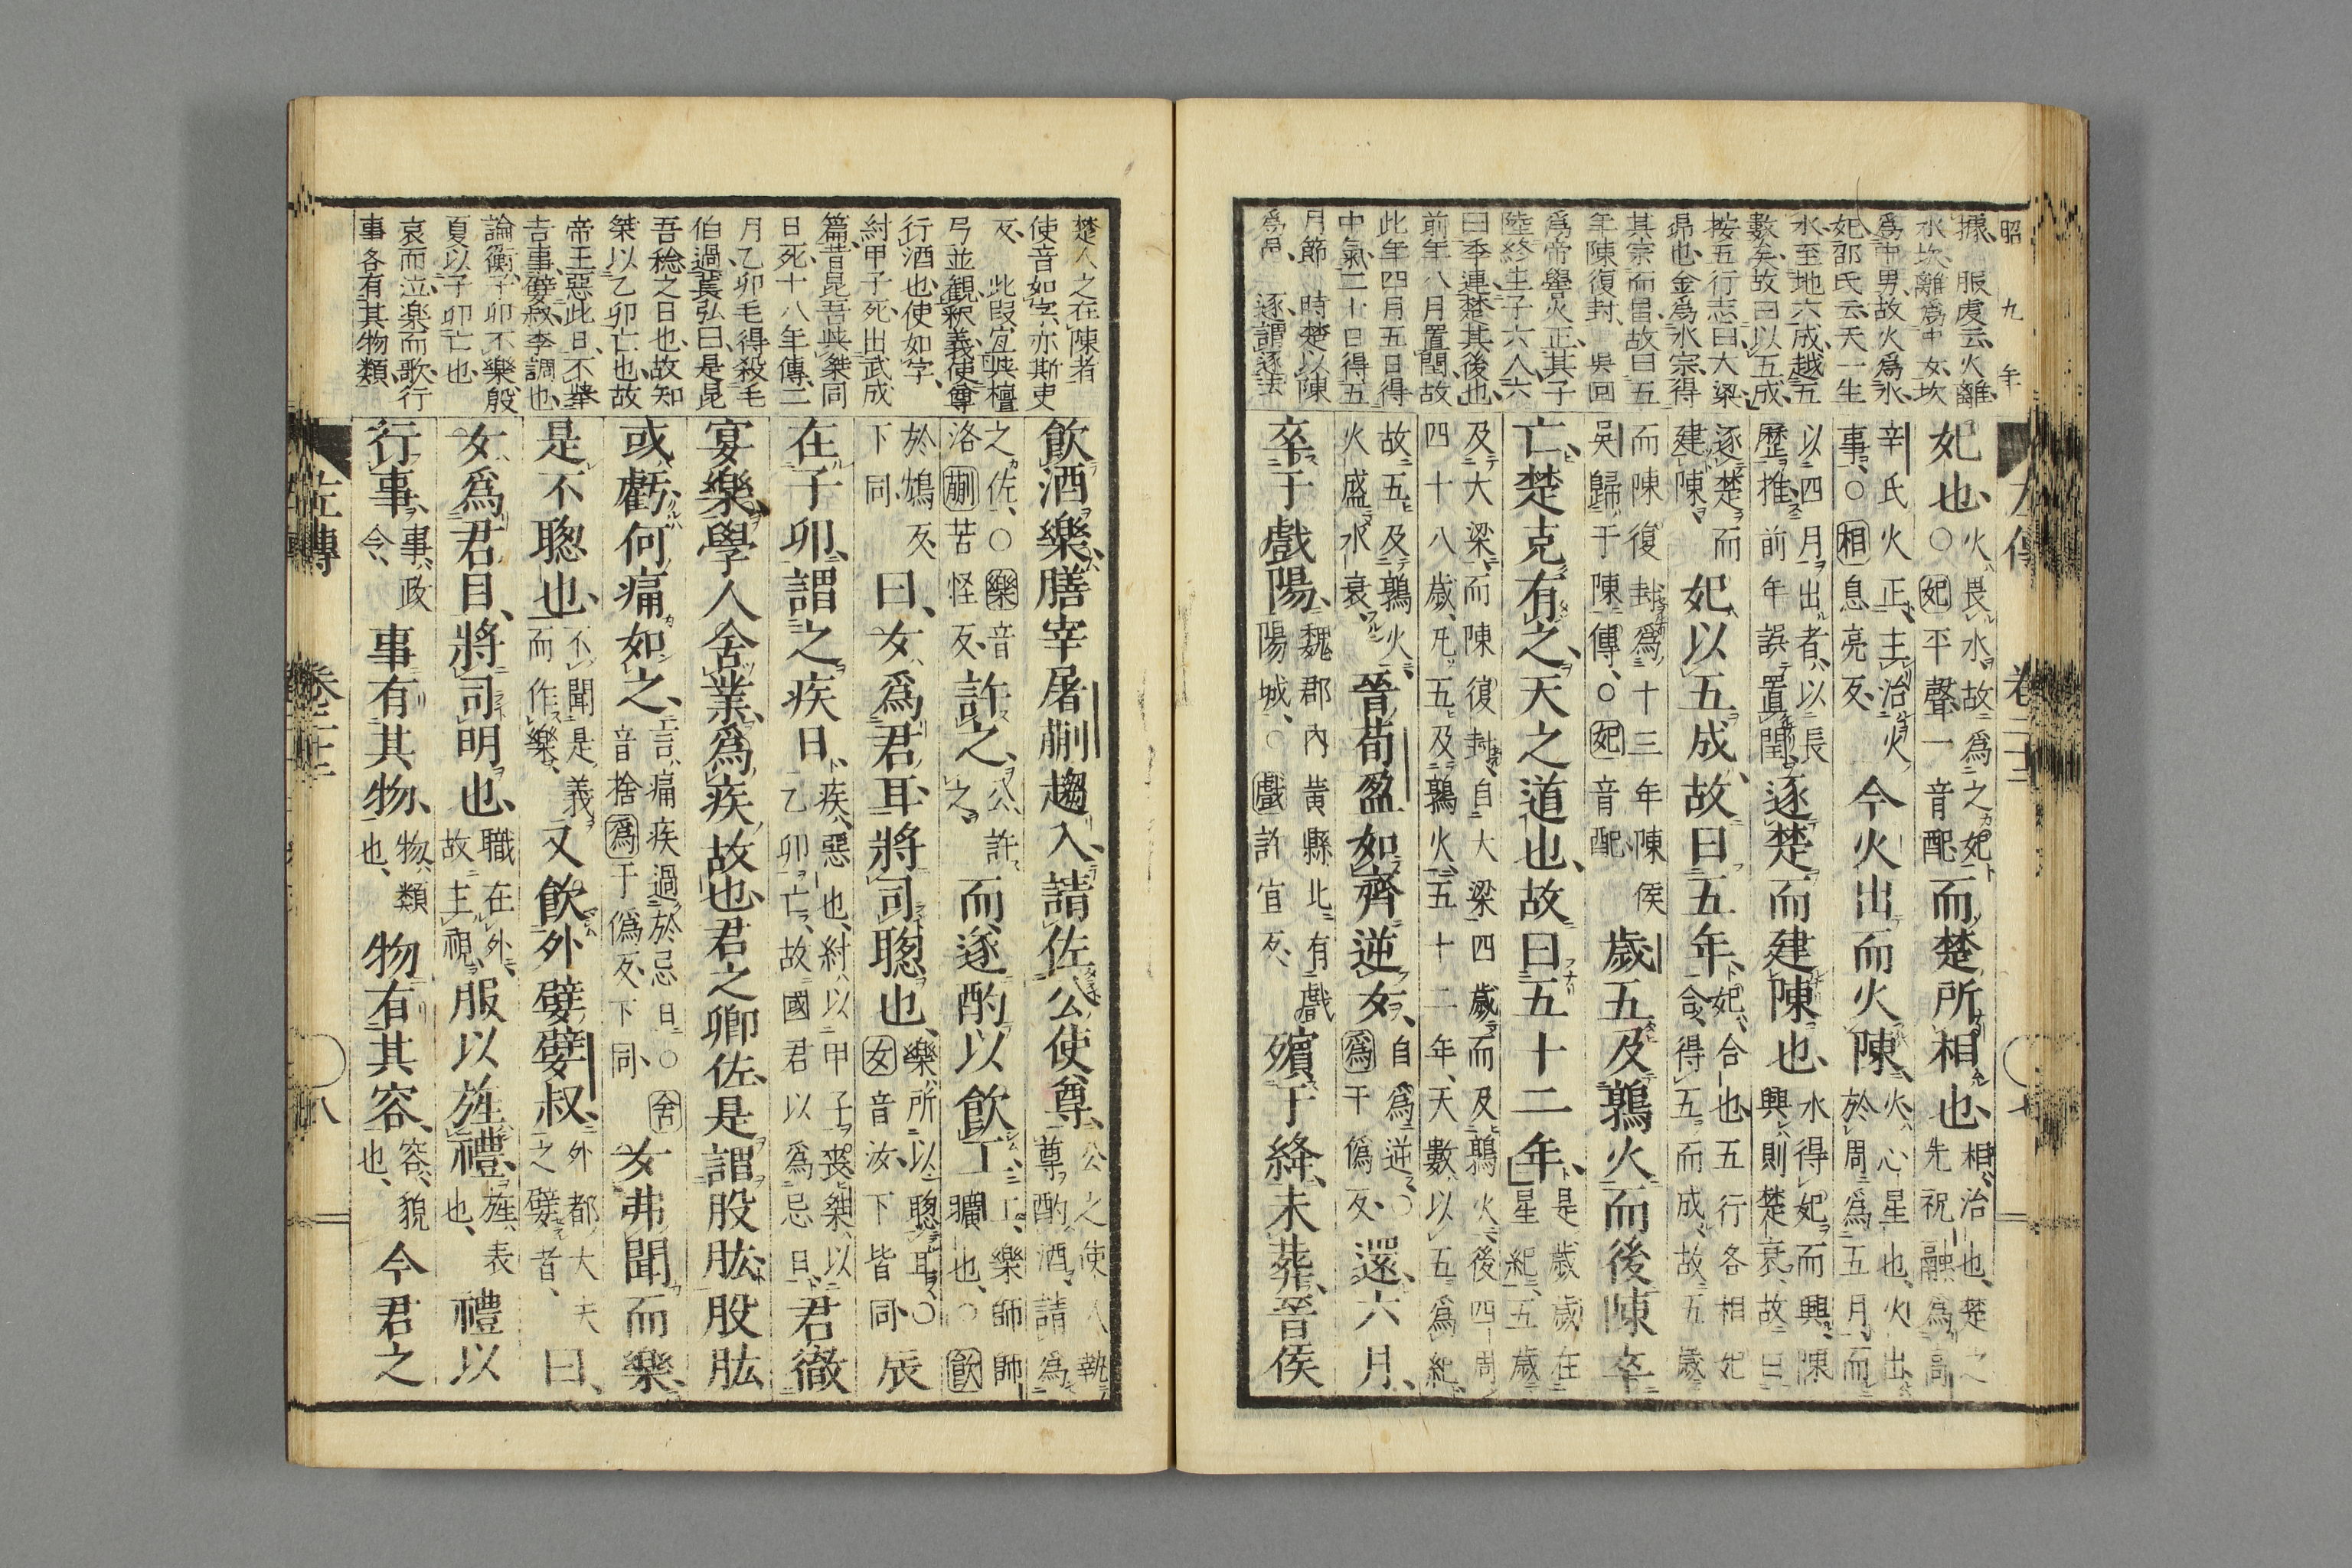 昭九年
據、服虔云、火離、
水坎、離爲中女、坎
爲中男、故火爲水
妃、邵氏云、天一生
水、至地六成、越五
數矣、故曰以五成、
按五行志曰、大梁、
昴也、金爲水宗、得
其宗而昌、故曰五
年陳復封、吳回
爲帝嚳火正、其子
陸終生子六人、六
曰季連、楚其後也、
前年八月置閏、故
此年四月五日得
中氣、二十日得五
月節　時楚以陳
爲邑、逐謂逐去
妃也、火畏水、故爲之妃○妃平聲、一音配、而楚所相也、相、治也、楚之先祝融、爲高
辛氏火正、主治火事、○相息亮反、今火出而火陳、火、心星也、火出、於周爲五月、而
以四月出者、以長歷推、前年誤置閏、逐楚而建陳也、水得妃而興、陳興則楚衰、故曰
逐楚而建陳、妃以五成、故曰五年、妃、合也、五行各相妃合、得五而成、故五歲
而陳復封、爲十三年陳侯吳歸于陳傳、○妃音配、歲五及鶉火、而後陳卒
亡、楚克有之、天之道也、故曰五十二年、是歲歲在星紀、五歲
及大梁、而陳復封、自大梁四歲而及鶉火、後四周四十八歲、凡五及鶉火、五十二年、天數以五爲紀、
故五及鶉火、火盛水衰、晉荀盈如齊逆女、自爲逆、○爲于僞反、還六月、
卒于戲陽、魏郡內黃縣北有戲陽城、○戲許宜反、殯于絳、未葬、晉侯
楚人之在陳者
使音如字、亦斯吏
反、此段宜與檀
弓並觀、釈義、使尊
行酒也、使如字、
紂甲子死、出武成
篇、昔昆吾與桀同
日死、十八年傳、二
月乙卯、毛得殺毛
伯過、萇弘曰、是昆
吾稔之日也、故知
桀以乙卯亡也、故
帝王惡此日、不舉
吉事、嬖叔李調也、
論衡、子卯不樂、殷
夏以子卯亡也、
哀而泣、楽而歌、行
事各有其物類、
飲酒樂、膳宰屠蒯趨入、請佐公使尊、公之使人執尊酌酒、請爲
之佐、○樂音洛、蒯苦怪反、許之、公許之、而遂酌以飲工、工、樂師師曠也、○飲
於鴆反、下同、曰、女爲君耳、將司聰也、樂所以聰耳、○女音汝、下皆同、辰
在子卯、謂之疾日、疾、惡也、紂以甲子喪、桀以乙卯亡、故國君以爲忌日、君徹
宴樂、學人舍業、爲疾故也、君之卿佐、是謂股肱、股肱
或虧、何痛如之、言痛疾過於忌日、○舍音捨、爲于僞反、下同、女弗聞而樂、
是不聰也、不聞是義而作樂、又飲外嬖嬖叔、外都大夫之嬖者、曰、
女爲君目、將司明也、職在外、故主視、服以旌禮、旌、表也、禮以
行事、事、政令、事有其物、物、類也、物有其容、容、貌也、今君之
左傳　卷二十二　八